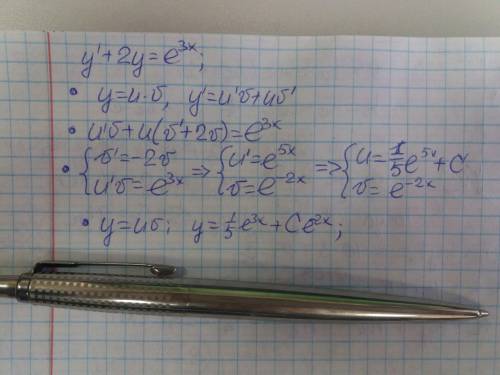 y' + 2y = e^{3x};
• y = u·v, y' = u'v + uv'
• u'v + u(v' + 2v) = e^{3x}
• { v' = -2v  u'v = e^{3x} => { u' = e^{5x}  v = e^{-2x} => { u = 1/5 e^{5x} + C  v = e^{-2x}
• y = uv; y = 1/5 e^{3x} + Ce^{2x};